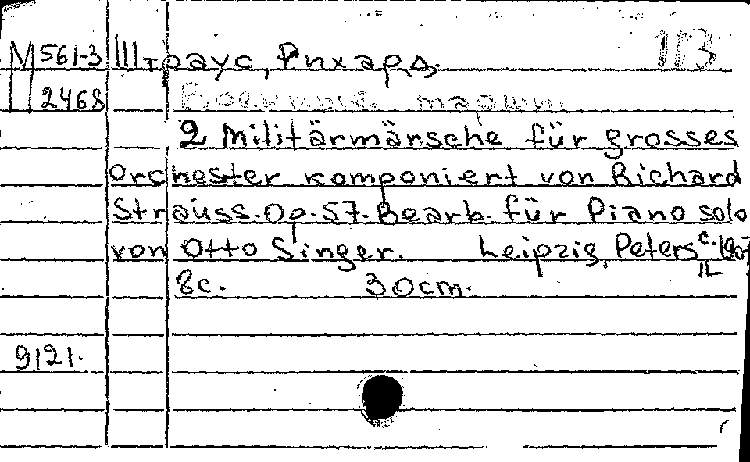 М 561-3 Штраус, Рихард. 113
2468 Военные марши
2 Militärmärsche für grosses
Orchester komponiert von Richard
Strauss. Op. 57. Bearb. für Piano solo
von Otto Singer. Leipzig, Peters c. 1907
8c. 30cm.
9121.